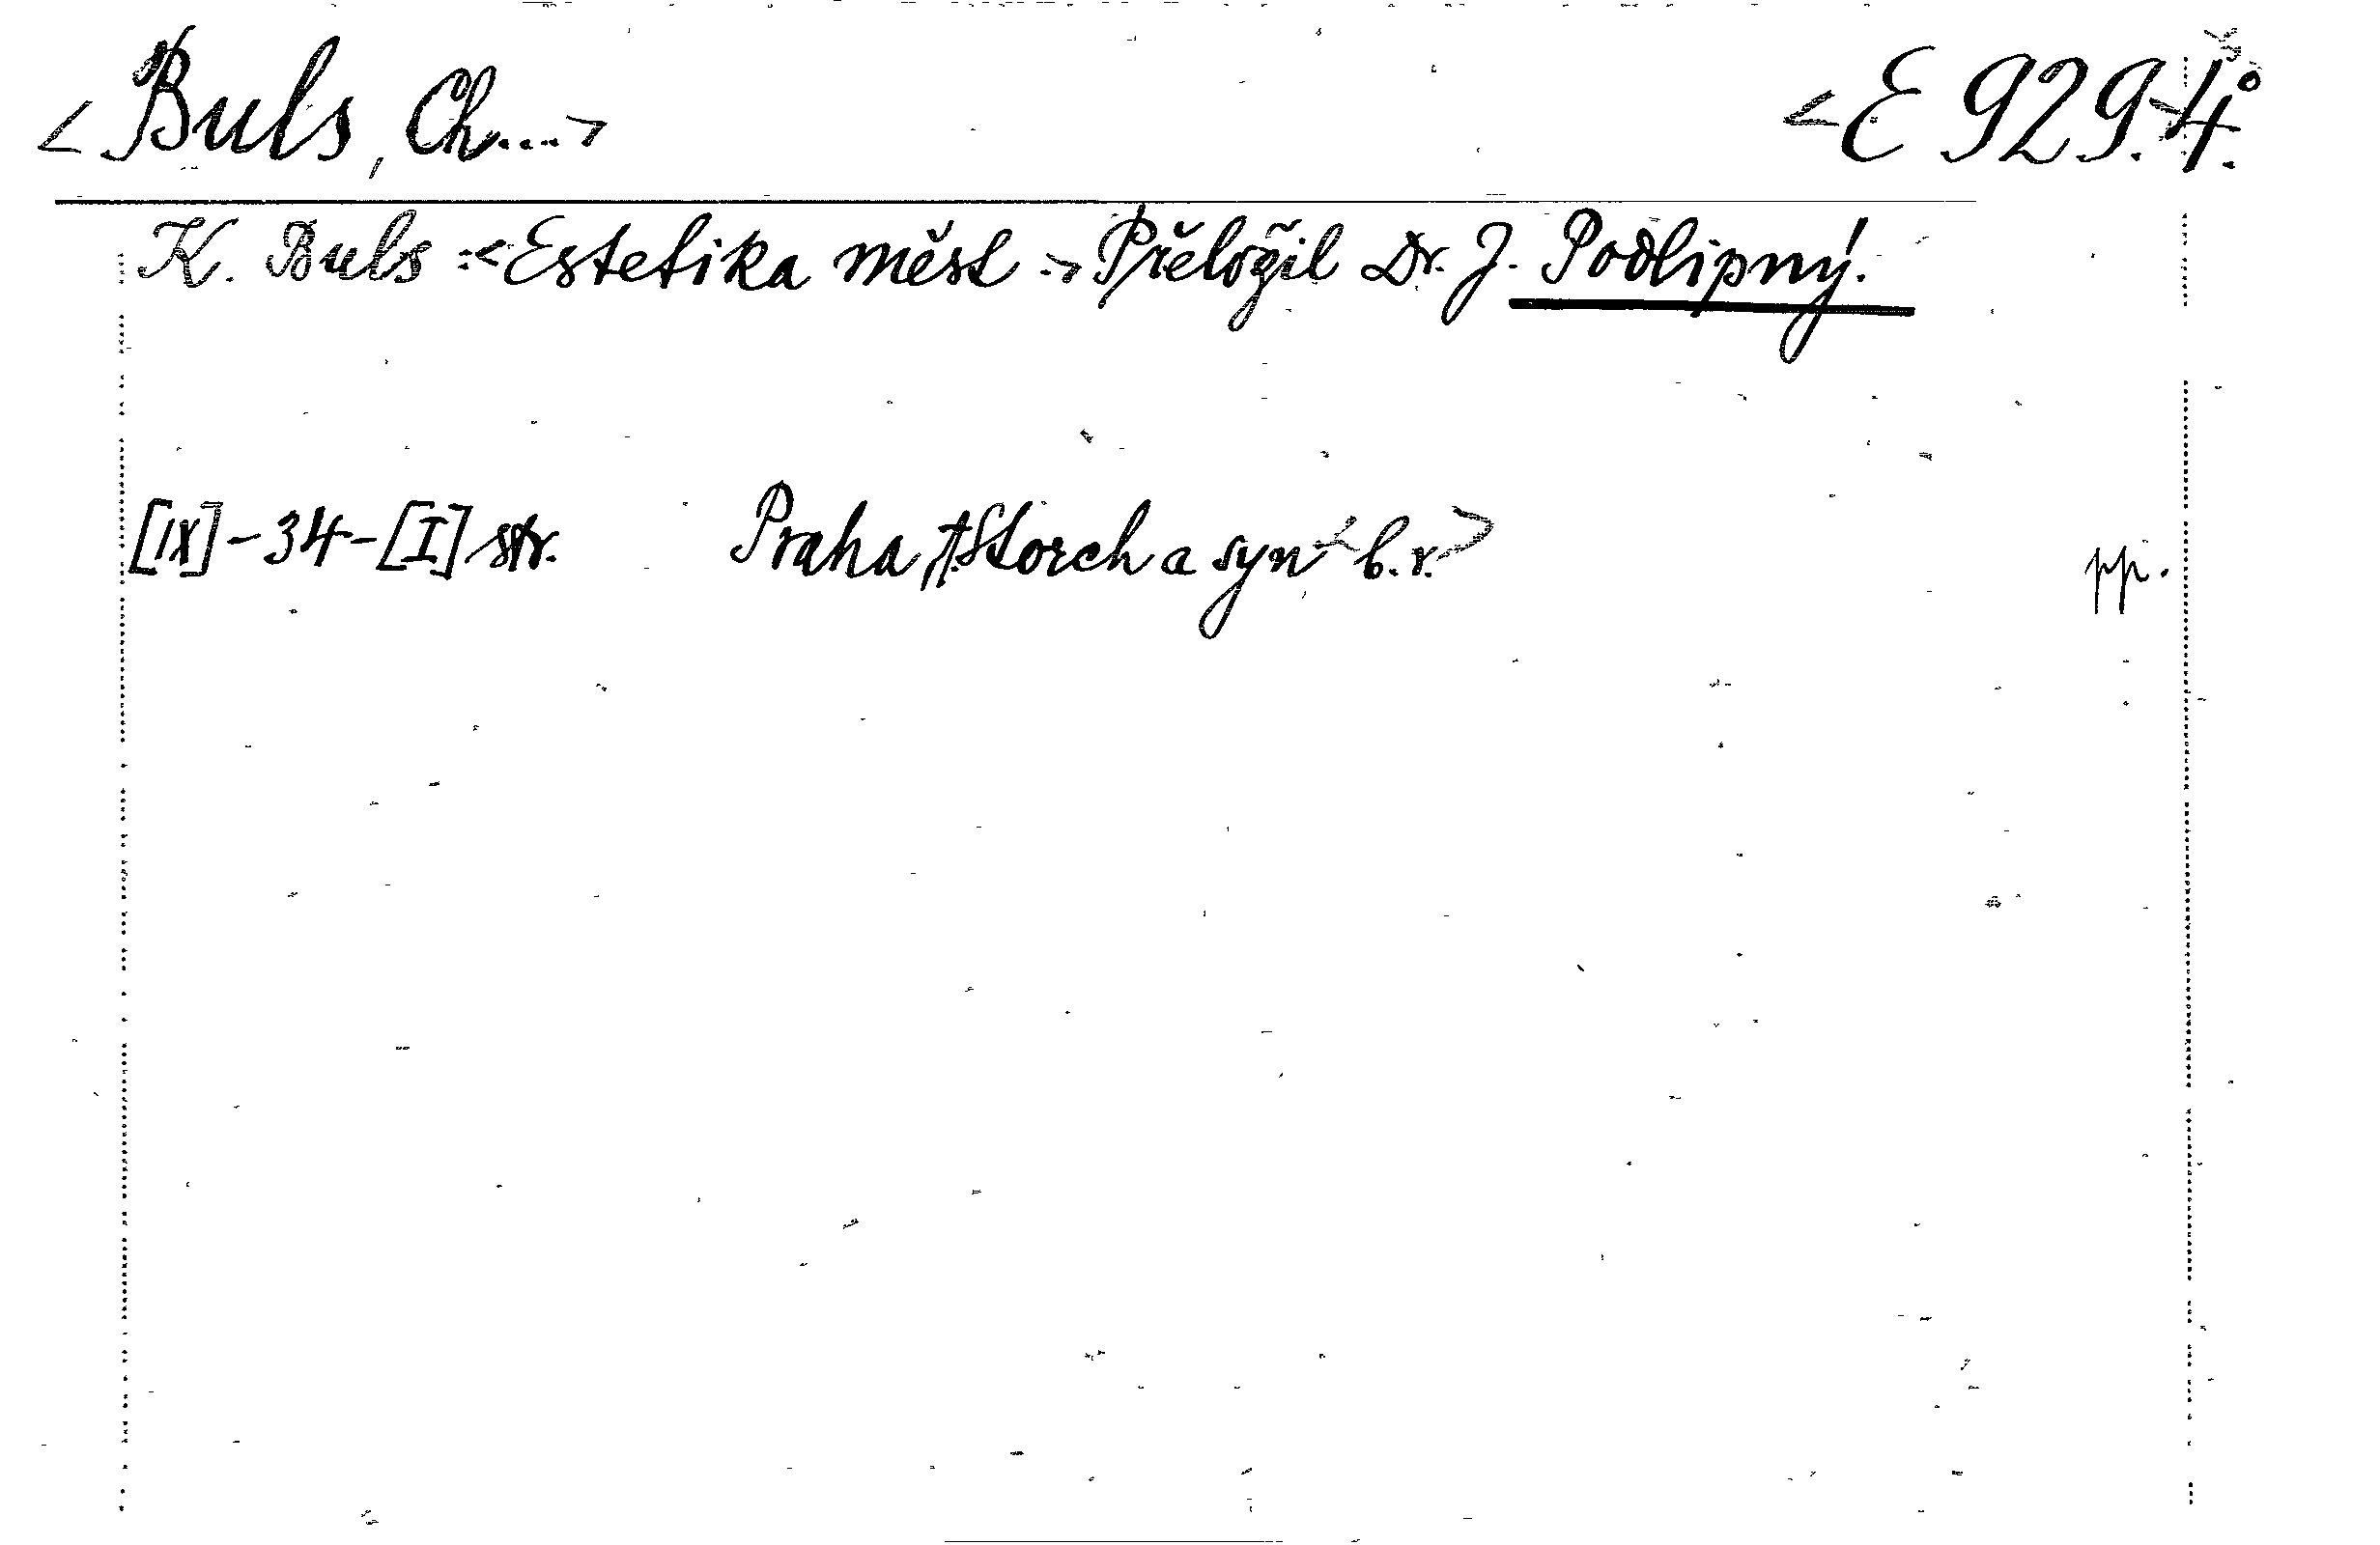 < Buls, Ch....> <E 929.>4°.
K. Buls :<Estetika měst :> Přeložil Dr. J. Podlipný.
[IX]-34-[I] str. Praha, Storch a syn <b.r.> pp.